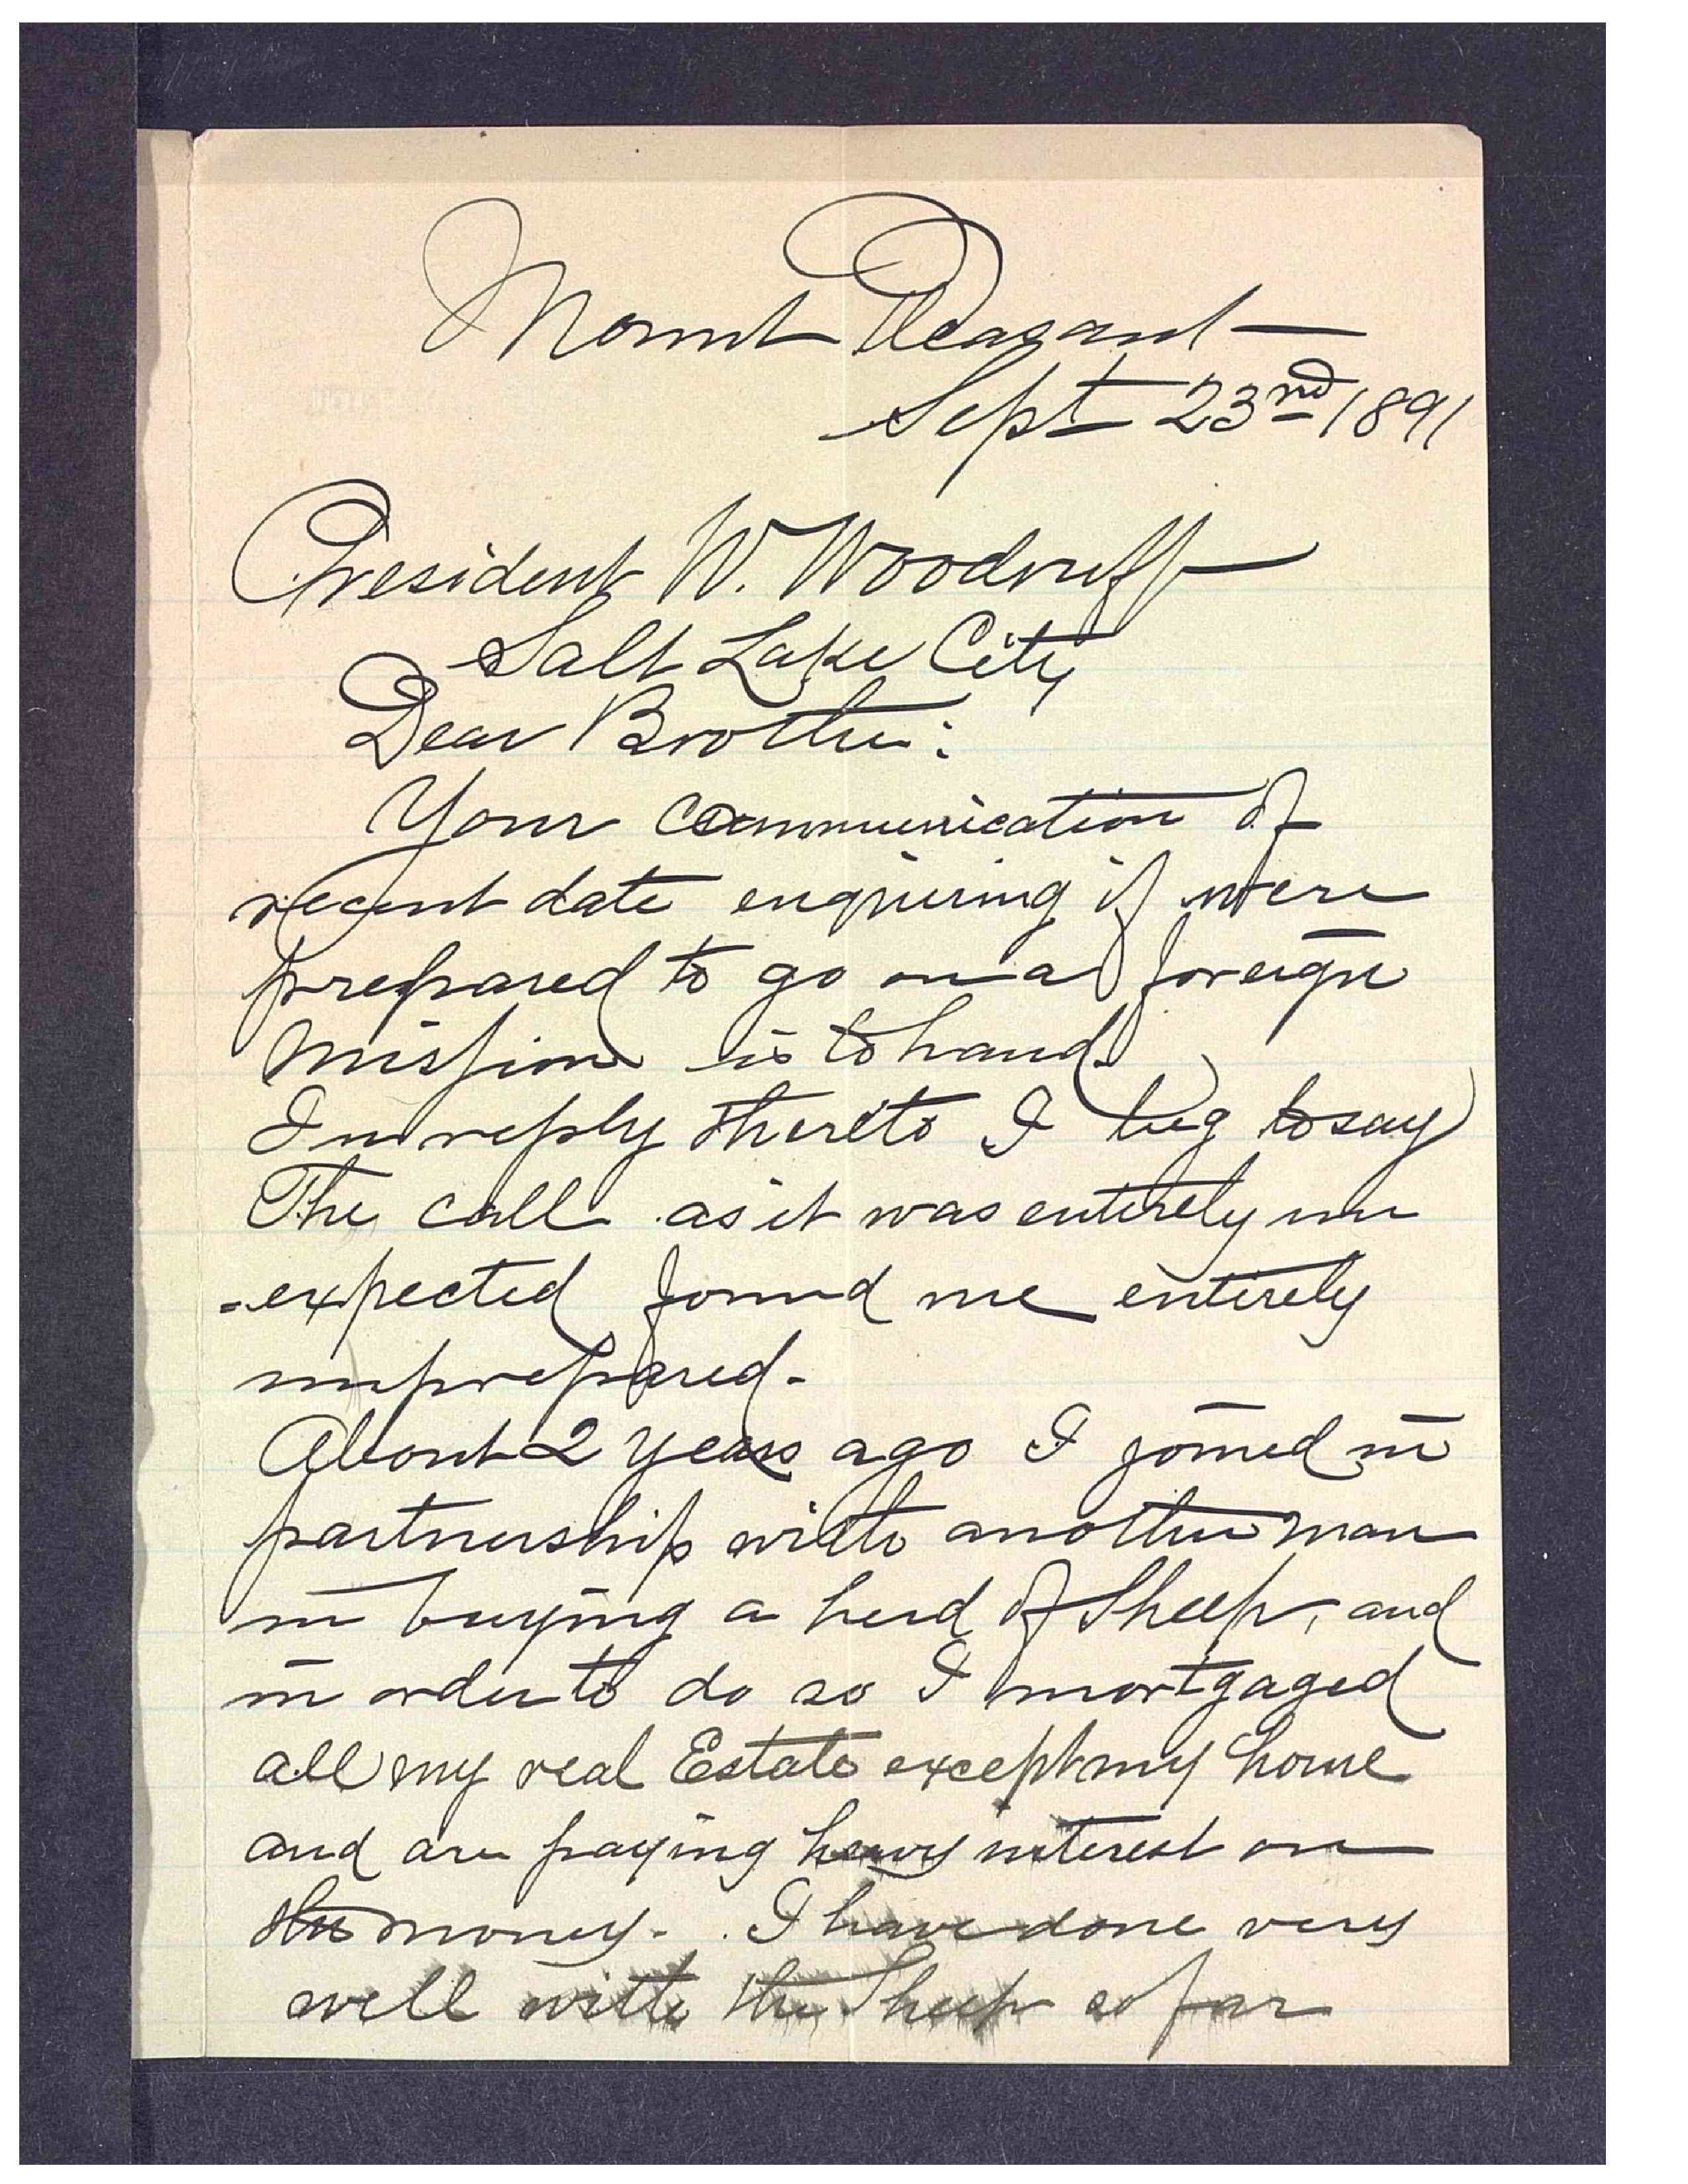 Mount Pleasant
Sept 23rd 1891
President W. Woodruff
Salt Lake City
Dear Brother:
Your communication of
recent date enquiring if were
prepared to go on a foreign
mission is to hand.
In reply thereto I beg to say
The call as it was entirely un
=expected found me entirely
unprepared.
About 2 years ago I joined in
partnership with another man
in buying a herd of Sheep, and
in order to do so I mortgaged
all my real Estate except my home
and are paying heavy interest on
the money. I have done very
well with the Sheep so far